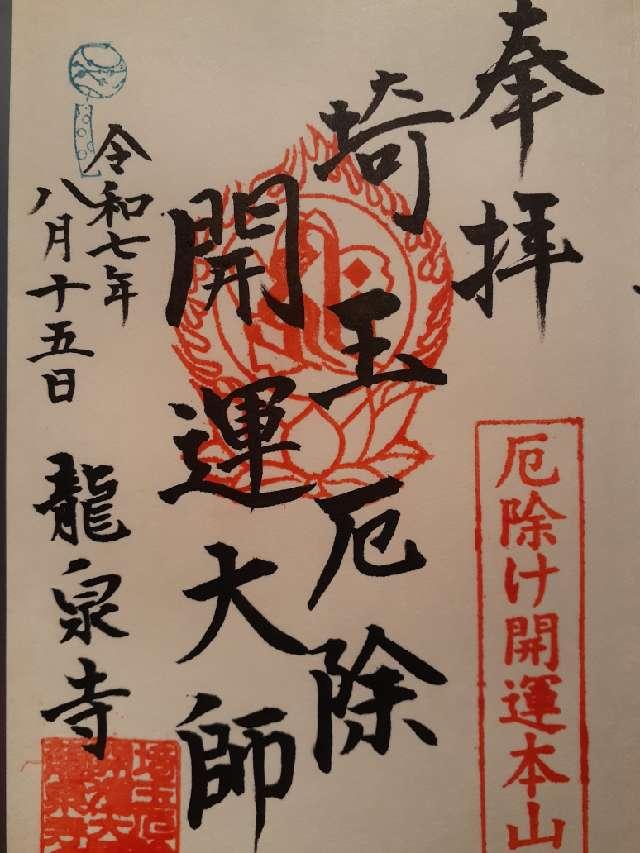 奉拝
厄除け開運本山
埼玉厄除
開運大師
令和七年
八月十五日
龍泉寺